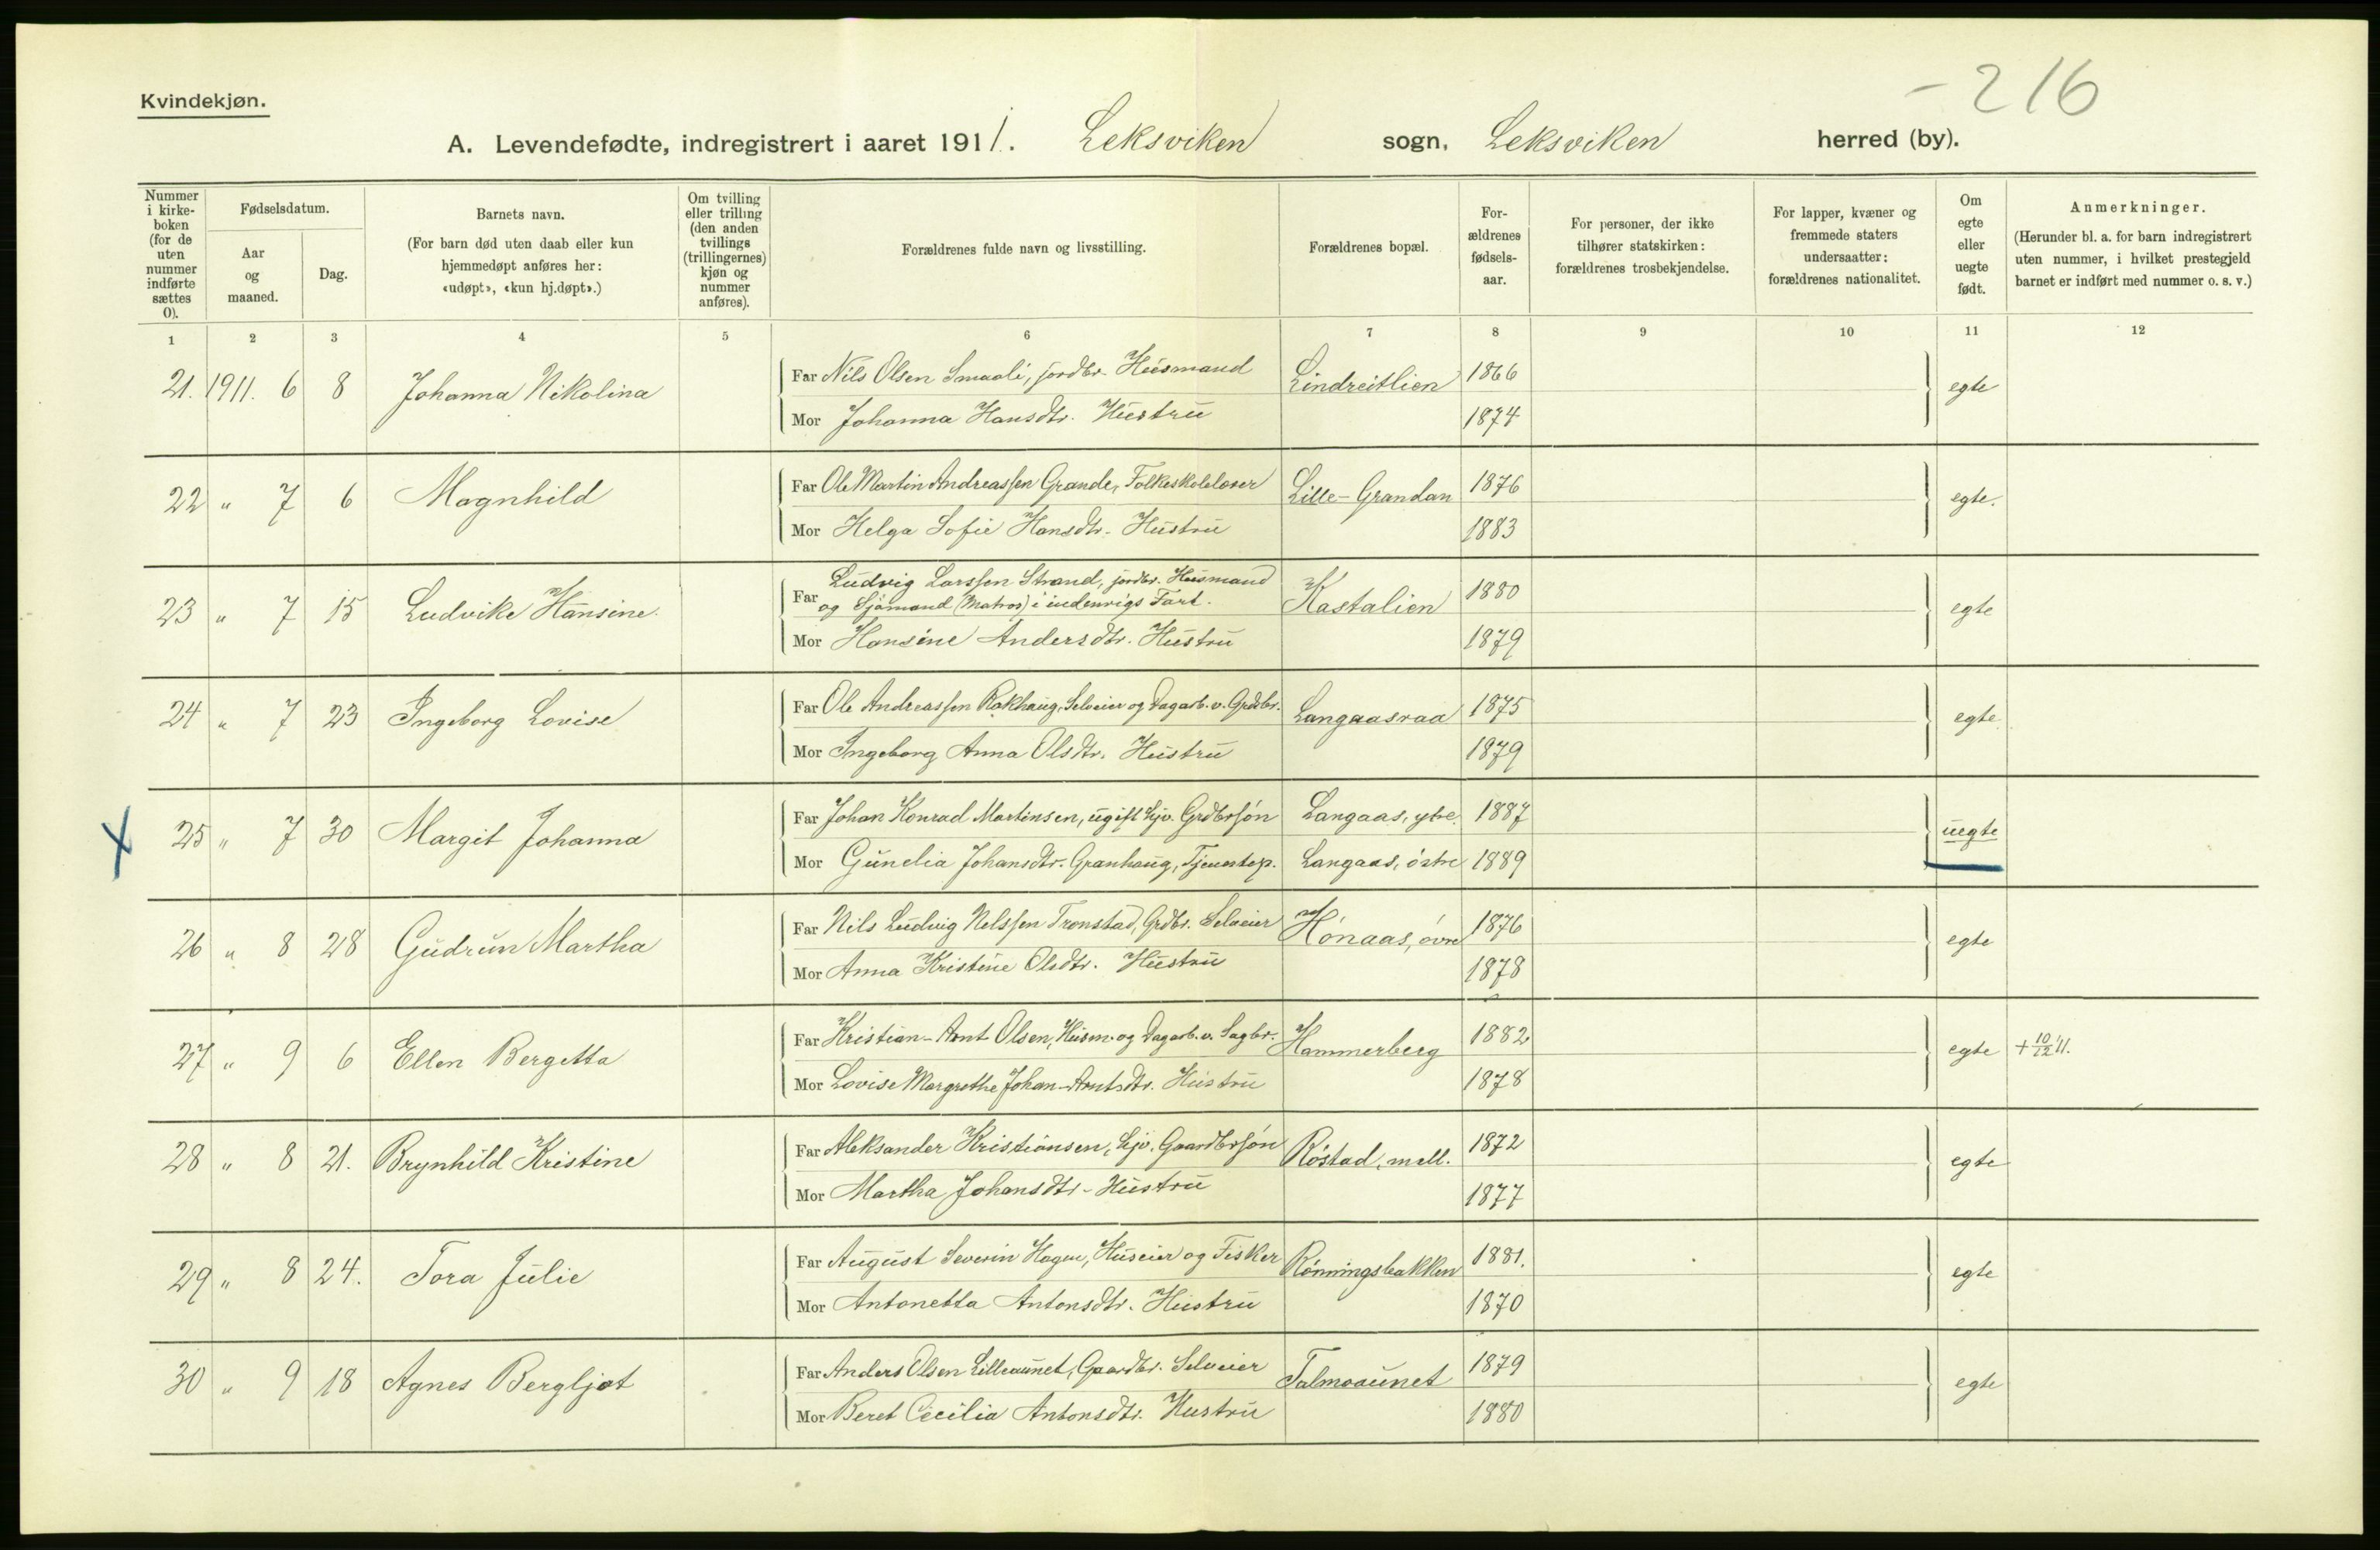 -216
Kvindekjøn.
A. Levendefødte, indregistrert i aaret 1911. Leksviken sogn, Leksviken herred (by).
Nummer i kirke-boken (for de uten nummer indførte sættes 0).
Fødselsdatum.
Aar og maaned.
Dag.
Barnets navn.
(For barn død uten daab eller kun hjemmedøpt anføres her: «udøpt», «kun hj.døpt».)
Om tvilling eller trilling (den anden tvillings (trillingernes) kjøn og nummer anføres).
Forældrenes fulde navn og livsstilling.
Forældrenes bopæl.
For-ældrenes fødsels-aar.
For personer, der ikke tilhører statskirken: forældrenes trosbekjendelse.
For lapper, kvæner og fremmede staters undersaatter: forældrenes nationalitet.
Om egte eller uegte født.
Anmerkninger.
(Herunder bl. a. for barn indregistrert uten nummer, i hvilket prestegjeld barnet er indført med nummer o. s. v.)
1 2 3 4 5 6 7 8 9 10 11 12
21. 1911. 6 8 Johanna Nikolina Far Nils Olsen Smaali, jordbr. Husmand Lindreitlien 1866 egte
Mor Johanna Hansdtr. Hustru 1874
22 " 7 6 Magnhild Far Ole Martin Andreassen Grande, Folkeskolelærer Lille-Grandan 1876 egte.
Mor Helga Sofie Hansdtr. Hustru 1883
23 " 7 15 Ludvike Hansine. Far Ludvig Larssen Strand, jordbr. Husmand
og Sjømand (Matros) i indenrigs Fart. Kastalien 1880 egte
Mor Hansine Andersdtr. Hustru 1879
24 " 7 23 Ingeborg Lovise Far Ole Andreassen Rakhaug, Selveier og Dagarb. v. Grdbr. Langaasraa 1875 egte
Mor Ingeborg Anna Olsdtr. Hustru 1879
X 25 " 7 30 Margit Johanna Far Johan Konrad Martinsen, ugift hjv. Grdbrsøn Langaas, ytre 1887 uegte
Mor Gunelia Johansdtr. Granhaug, Tjenestep. Langaas, østre 1889
26 " 8 28 Gudrun Martha Far Nils Ludvig Nelssen Tronstad, Grdbr. Selveier Hönaas, övre 1876 egte
Mor Anna Kristine Olsdtr. Hustru 1878
27 " 9 6 Ellen Bergetta Far Kristian-Arnt Olsen, Husm. og Dagarb. v. Sagbr. Hammerberg 1882 egte + 10/12 11.
Mor Lovise Margrethe Johan-Arntsdtr. Hustru 1878
28 " 8 21. Brynhild Kristine Far Aleksander Kristiansen, hjv. Gaardbrsøn Röstad, mell. 1872 egte
Mor Martha Johansdtr. Hustru 1877
29 " 8 24. Tora Julie Far August Severin Hagen, Huseier og Fisker Rönningsbakken 1881. egte
Mor Antonetta Antonsdtr. Hustru 1870
30 " 9 18 Agnes Bergljot Far Anders Olsen Lilleaunet, Gaardbr. Selveier Talmoaunet 1879 egte
Mor Beret Cecilia Antonsdtr. Hustru 1880